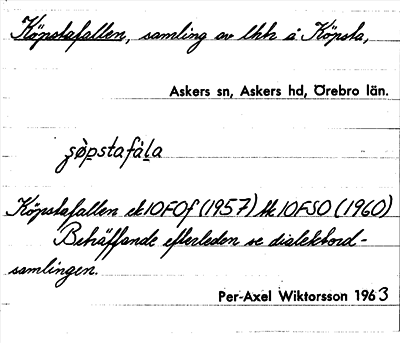 Köpstafallen, samling av lhh å Köpsta,
Askers sn, Askers hd, Örebro län.
șø̀pstafáḷa
Köpstafallen ek 10F0f (1957) tk 10FSO (1960)
Beträffande efterleden se dialektord-
samlingen.
Per-Axel Wiktorsson 1963